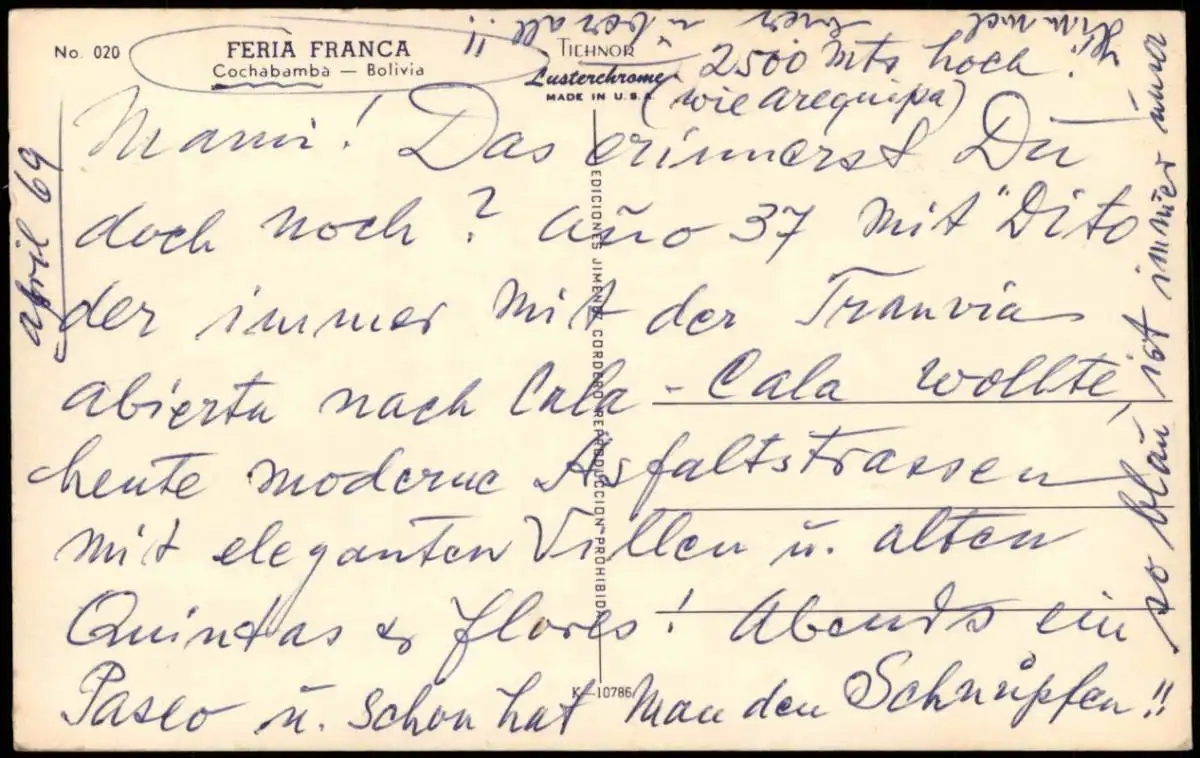 No. 020
FERIA FRANCA
Cochabamba — Bolivia
TICHNOR
Lusterchrome
MADE IN U.S.A.
2500 Mts hoch!
(wie Arequipa)
April 69
Mami! Das erinnerst Du
doch noch? Año 37 mit "Dito
der immer mit der Tranvia
abierta nach Cala-Cala wollte,
heute moderne Asfaltstrassen
mit eleganten Villen u. alten
Quintas & flores! Abends ein
Paseo u. schon hat man den Schnupfen!!
so blau, ist immer unser
Himmel hier überall!!
EDICIONES JIMENEZ CORDERO REPRODUCCION PROHIBIDA
K-10786